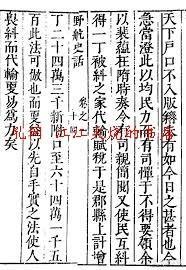 天下戶口不入版籍者有如今日之甚者也今
急當澄此以均民力而有司憚于不得要領余
以裴蘊在隋時奏令 親簡閱又使民互糾
得一丁被糾之家代輸賦稅于是郡縣上計增
野航史話 卷之
丁二十四萬三千新附口至六十四萬一千五
百此法可 也而要 以先自手實之法使人
糾而代輸 易為力矣